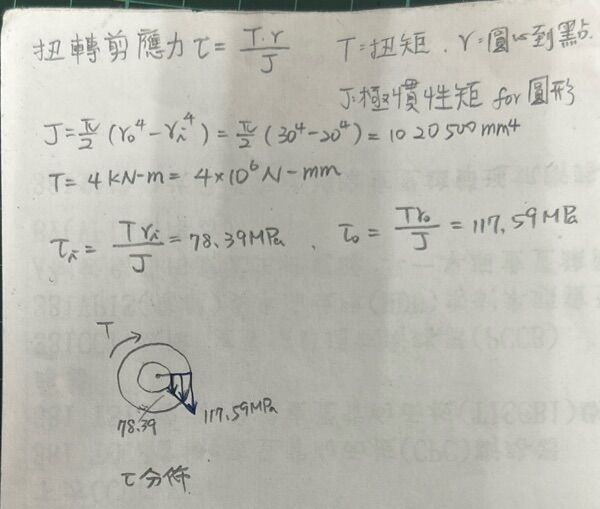 扭轉剪應力 τ = T·r / J   T=扭矩, r=圓心到點.
J=極慣性矩 for 圓形
J = π/2 (r₀⁴ - rᵢ⁴) = π/2 (30⁴ - 20⁴) = 1020500 mm⁴
T = 4 kN-m = 4×10⁶ N-mm
τᵢ = Trᵢ / J = 78.39 MPa, τ₀ = Tr₀ / J = 117.59 MPa
T
78.39
117.59 MPa
τ分佈